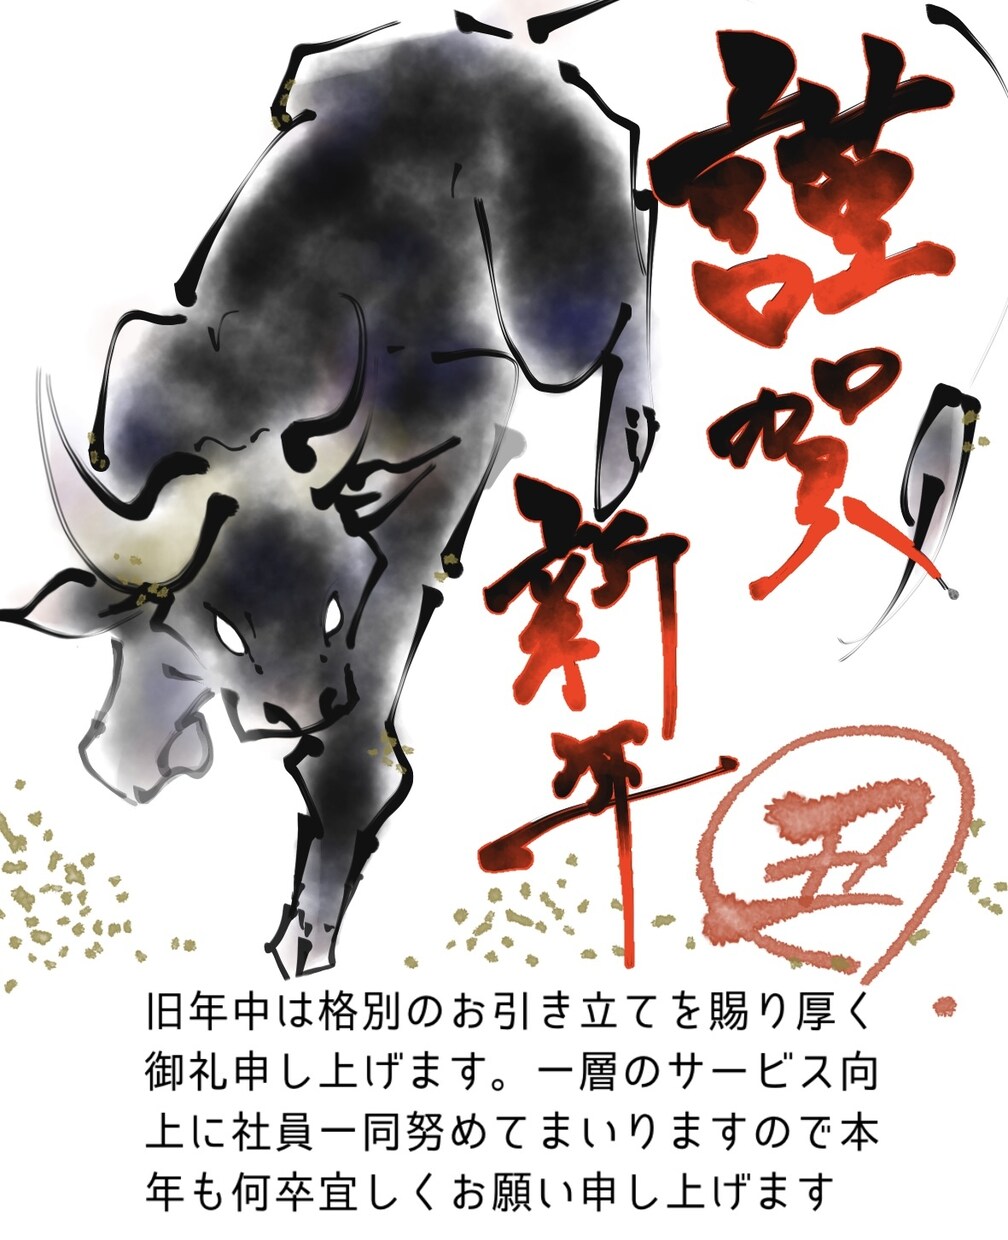 謹賀
新年
丑
旧年中は格別のお引き立てを賜り厚く
御礼申し上げます。一層のサービス向
上に社員一同努めてまいりますので本
年も何卒宜しくお願い申し上げます